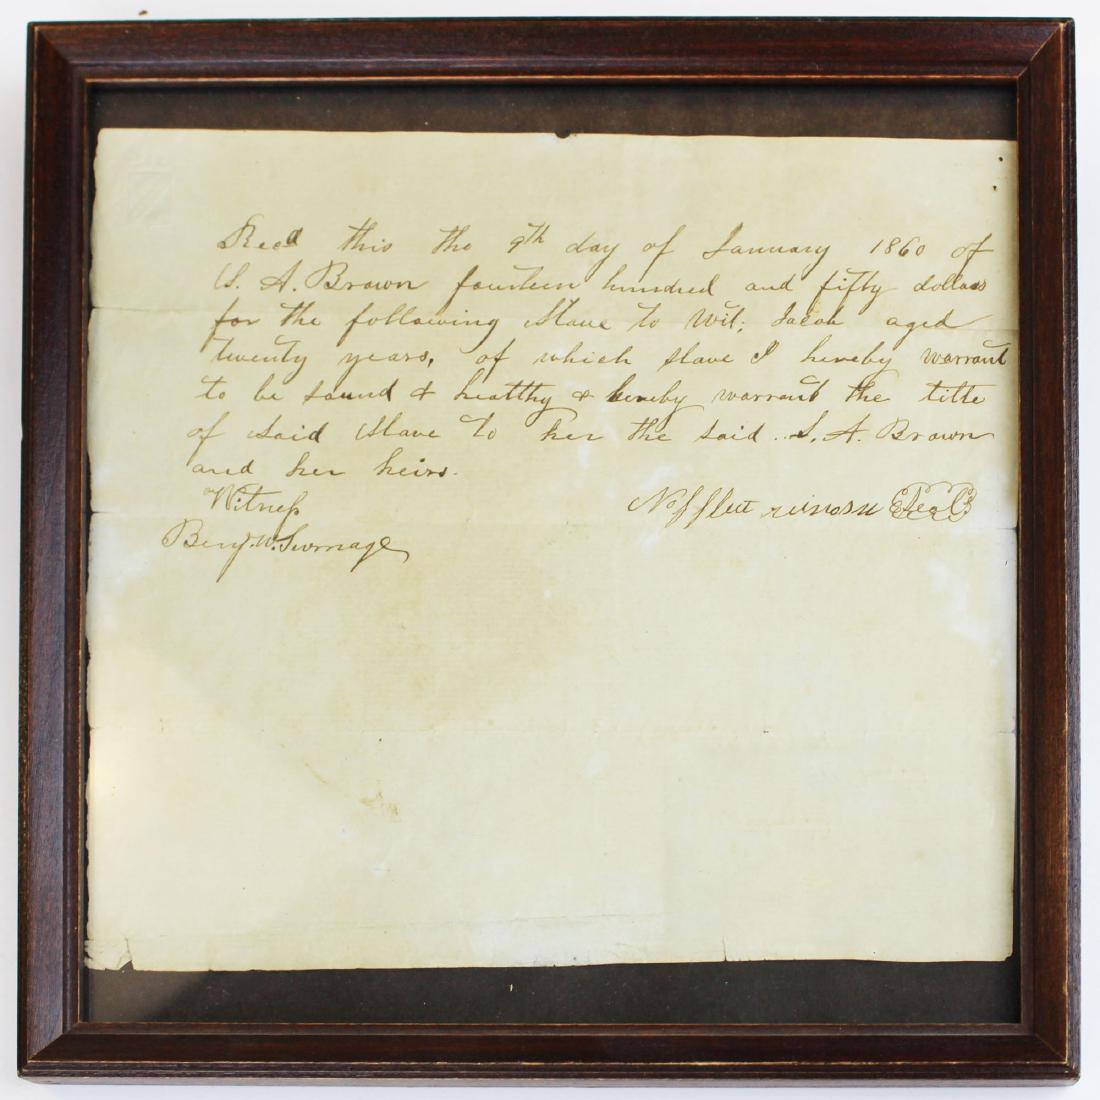 Recd this the 9th day of January 1860 of
S. A. Brown fourteen hundred and fifty dollars
for the following slave to wit; Jacob aged
twenty years, of which slave I hereby warrant
to be sound & healthy & hereby warrant the title
of said slave to her the said S. A. Brown
and her heirs.
Witness
Seal
Benj. W.